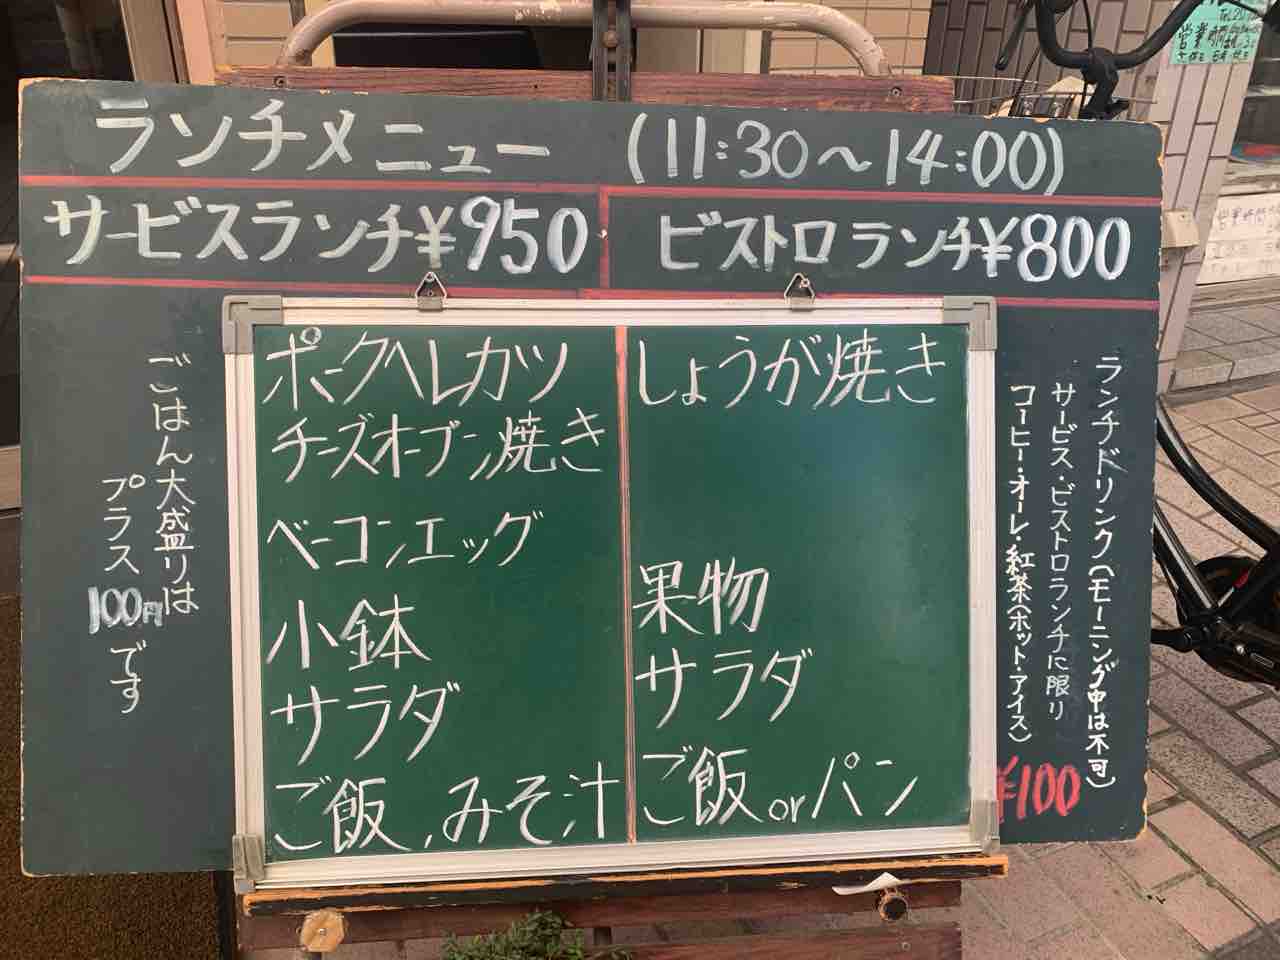 ランチメニュー (11:30〜14:00)
サービスランチ¥950
ポークヘレカツ
チーズオーブン焼き
ベーコンエッグ
小鉢
サラダ
ご飯、みそ汁
ビストロランチ¥800
しょうが焼き
果物
サラダ
ご飯orパン
ごはん大盛りは
プラス100円です
ランチドリンク(モーニング中は不可)
サービス・ビストロランチに限り
コーヒー・オーレ・紅茶(ホット・アイス)
¥100
営業時間
営業時間